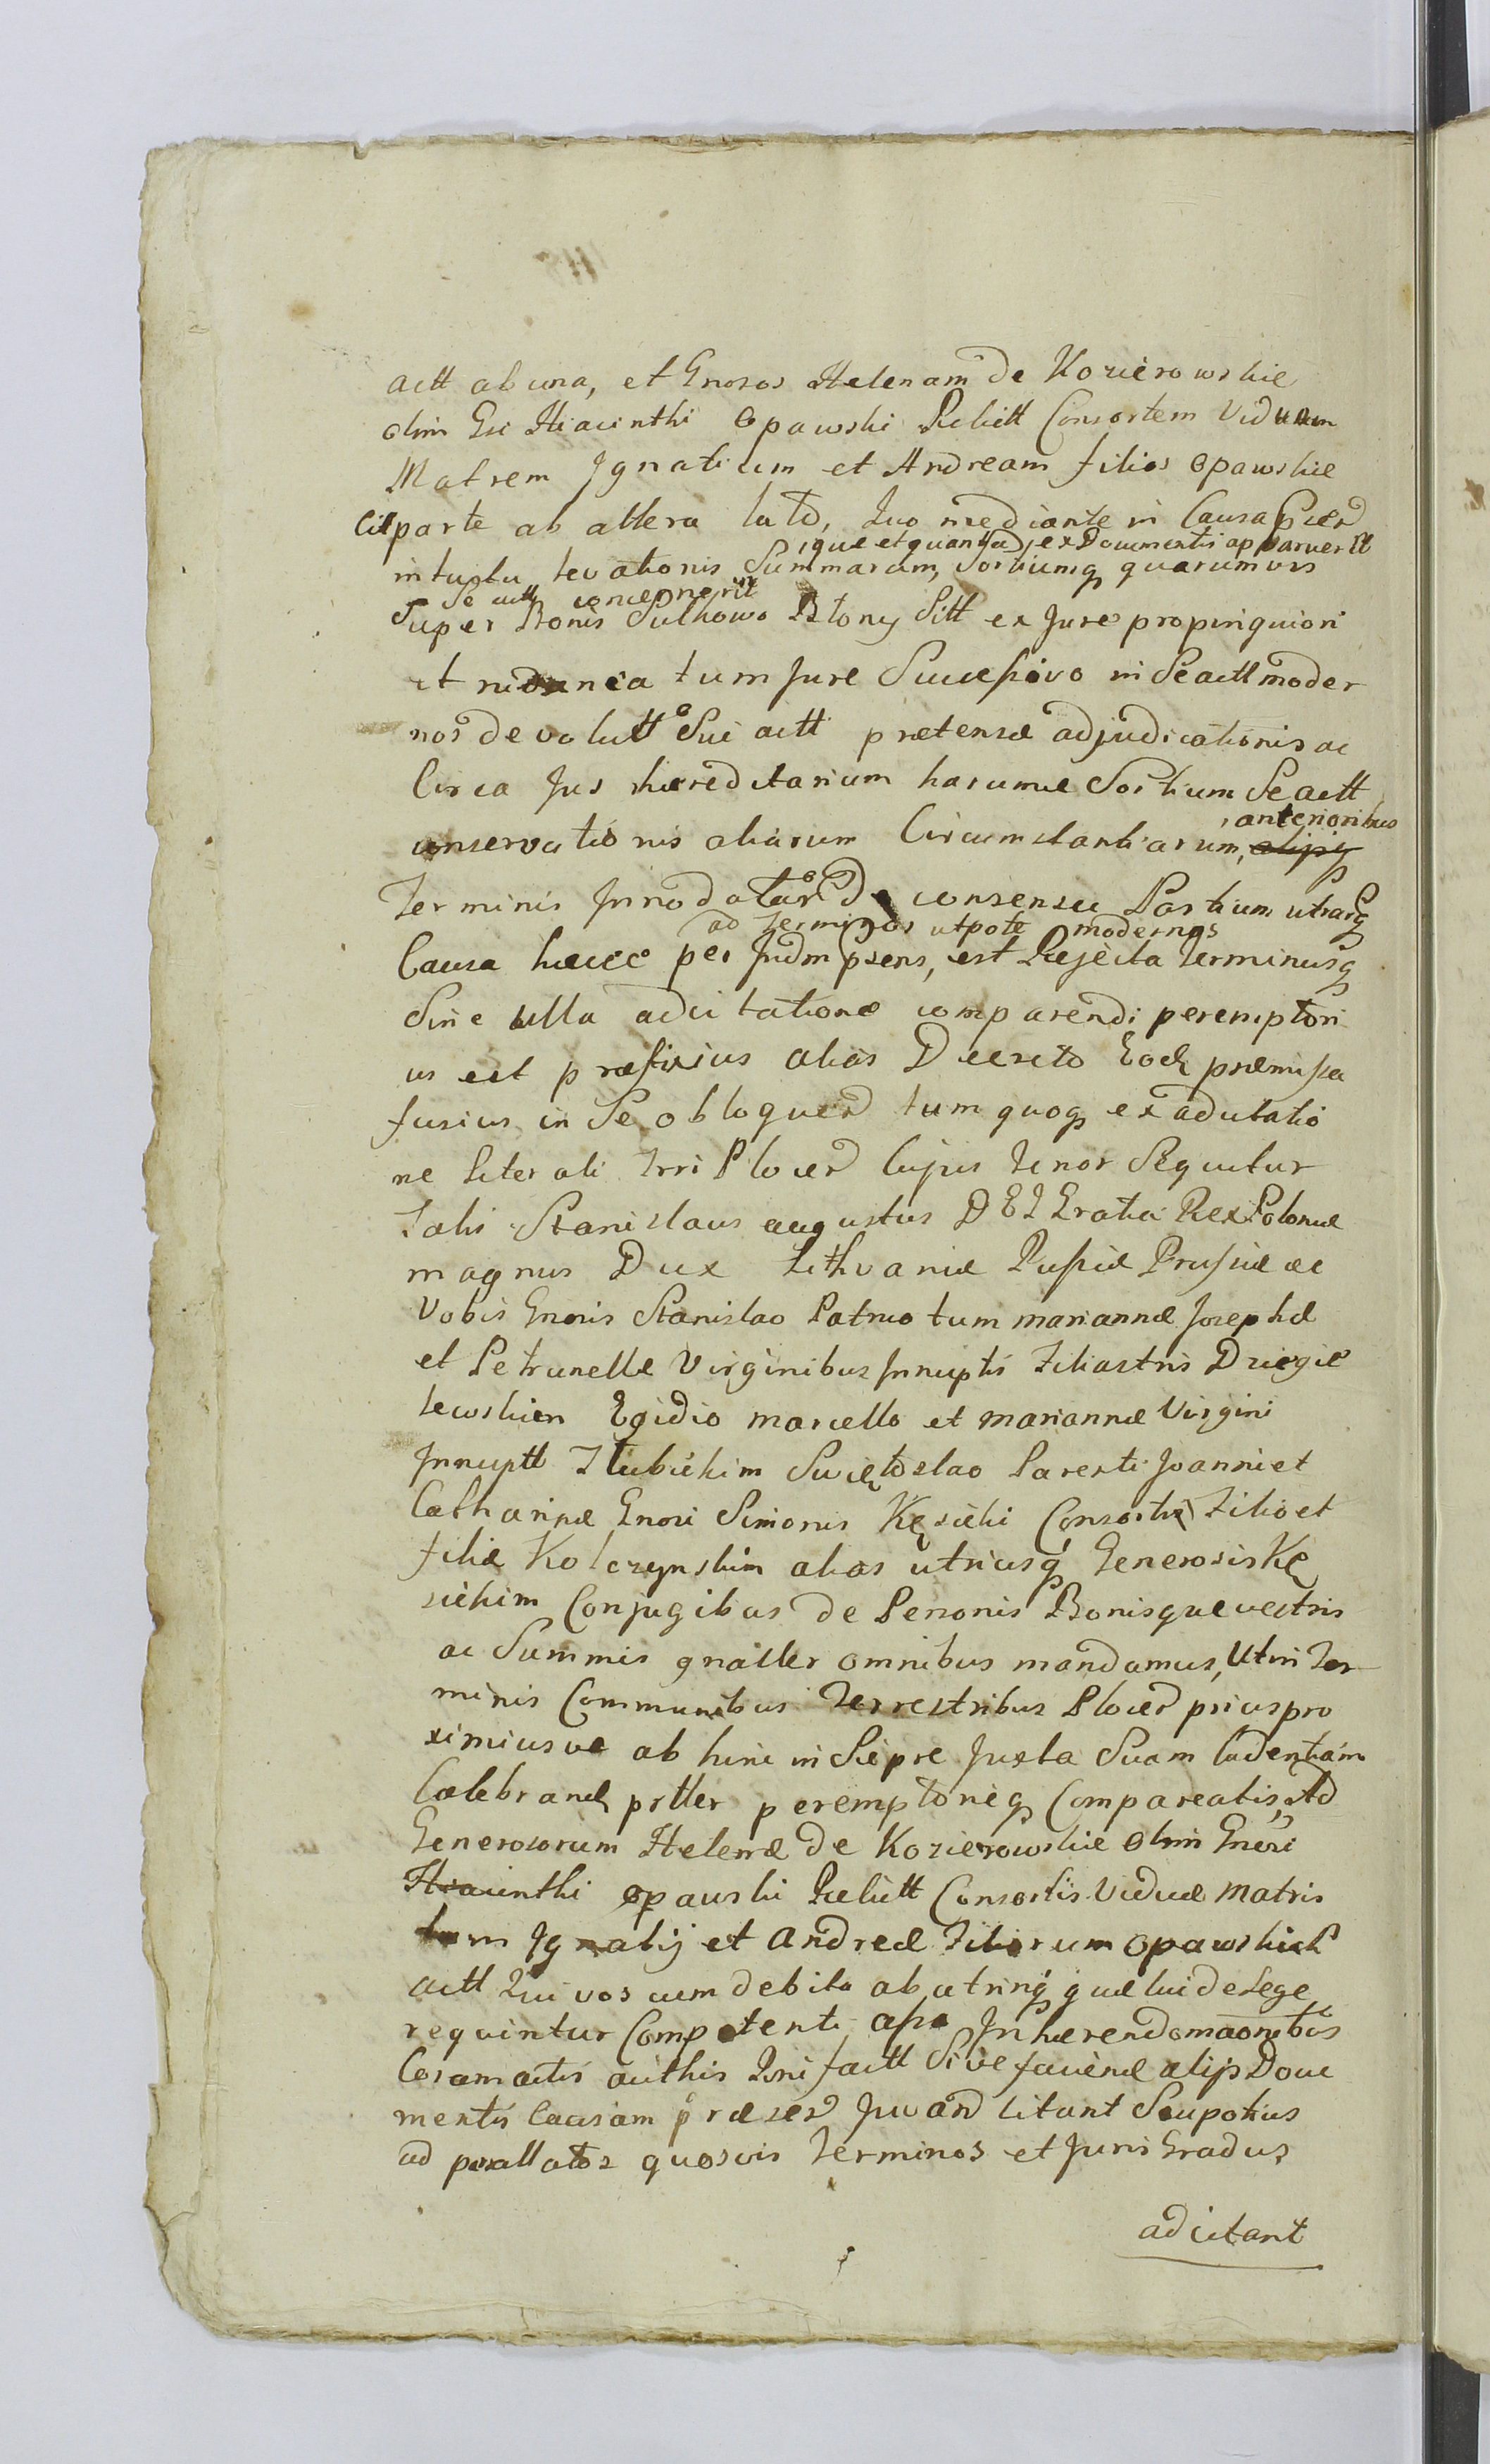 actt ab una, et Gnosos Helenam de Kozierowskie
olim Gsi Hiacinthi Opawski Relictt Consortem Viduam
Matrem Ignatium et Andream filios Opawskie
Citt parte ab altera latd, quo mediante in Causa
, quæ et quantæ ex Documentis apparuer
intuitu levationis Summarum, Sortiumq quarumvis
Se actt concernerint
Super Bonis Sulkowo Sitt ex Jure propinquiori
et tum Jure Successivo in Se actt moder
nos devolutt Sui actt prætensæ adjudicationis ac
Circa Jus hæreditarium harumce Sortium Se actt
, anterioribus
conservationis aliarum Circumstantiarum, alijsq
Terminis Innodatar De consensu Partium utrarq
ad Terminos utpote modernos
Causa hæcce per Judm psens, est Rejecta Terminusq
Sine ulla adcitatione comparendi peremptori
us est præfixus alias Decreto Eod præmissa
fusius in Se obloquend tum quoq ex adcitatio
ne literali Trri Plocen Cujus Tenor Sequitur
Talis Stanislaus augustus DEI Gratia Rex Poloniæ
magnus Dux Lithvaniæ Russiæ Prussiæ ac
Vobis Gnosis Stanislao Patruo tum mariannæ Josephæ
et Petrunellæ Virginibus Innuptis Filiastris Dziegie
lewskim Egidio marcello et mariannæ Virgini
Innuptt Hubickim Swiętoslao Parenti Joanni et
Catharinæ Gnosi Simonis Kęsicki Consorti Filio et
filiæ Kolczynskim alias utriusq Generosis Kę
sickim Conjugibus de Personis Bonisque vestris
ac Summis gnaller omnibus mandamus, Ut in Ter
minis Communibus Terrestribus Plocen prius pro
ximiusve ab hinc in Sierpc Juxta Suam Cadentiam
Celebrand prtler peremptorieq Compareatis, Ad
Generosorum Helenæ de Kozierowskie Olim Gnosi
Hiacinthi Opawski Relictt Consortis Viduæ Matris
tum Ignatij et Andreæ Filiorum Opawskich
actt Qui vos cum debita ab utrinq quæ cui de Lege
requiritur Competenti assa Inhærendo maonibus
Coram actis authis Sive faciend alijs Docu
mentis Causam præsen Juvan citant Seu potius
ad quosvis Terminos et Juris Gradus
adcitant